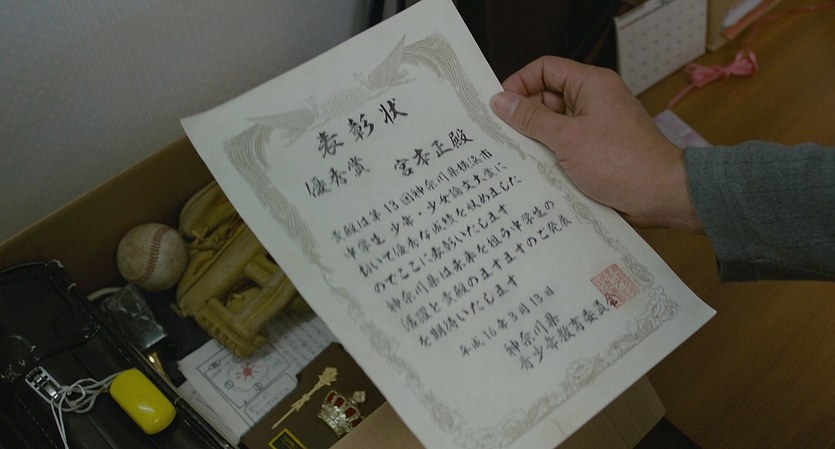 表彰状
優秀賞 宮本正殿
貴殿は第13回神奈川県横浜市
中学生 少年・少女論文大会に
おいて優秀な成績を収めました
のでここに表彰いたします
神奈川県は未来を担う中学生の
活躍と貴殿のますますのご発展
を期待いたします
平成16年3月13日
神奈川県
青少年教育委員会